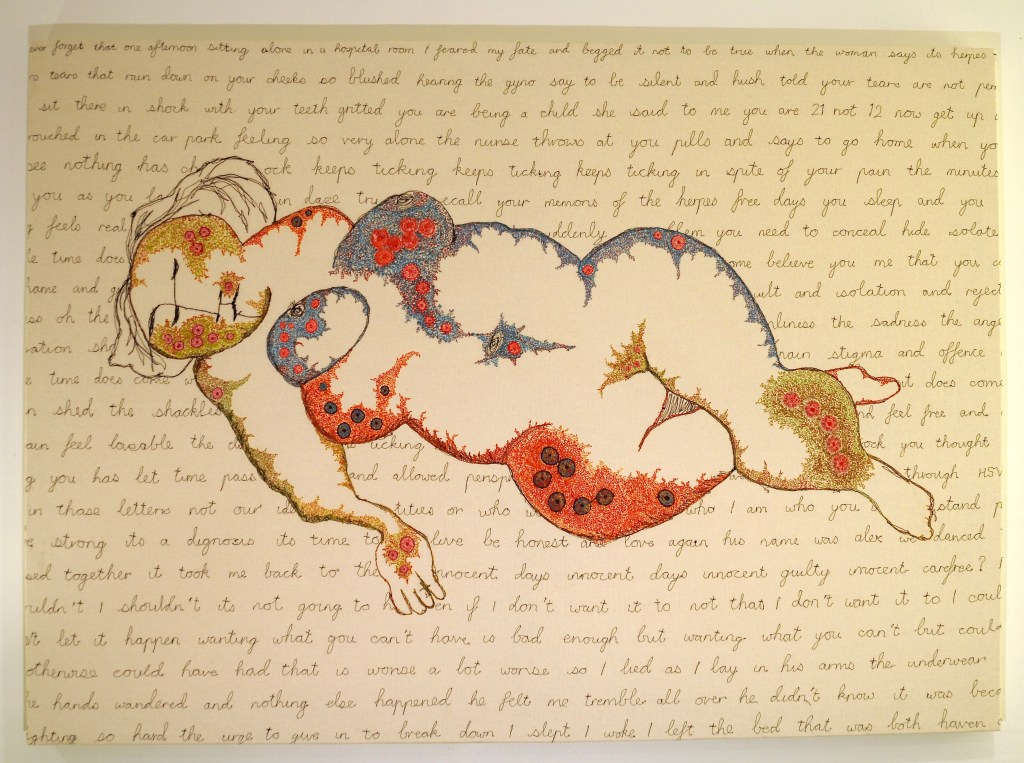 ever forget that one afternoon sitting alone in a hospital room I feared my fate and begged it not to be true when the woman says its herpes
tears that rain down on your cheeks so blushed hearing the gyno say to be silent and hush told your tears are not
sit there in shock with your teeth gritted you are being a child she said to me you are 21 not 12 now get up
rouched in the car park feeling so very alone the nurse throws at you pills and says to go home when yo
see nothing has ock keeps ticking keeps ticking keeps ticking in spite of your pain the minutes
you as you in daze try ecall your memoris of the herpes free days you sleep and you
feels real uddenly you need to conceal hide isolate
time does ome believe you me that you
hame and ult and isolation and reject
oh the liness the sadness the ange
ation sh stigma and offence
time does come does come
shed the shackles nd feel free and
ain feel loveable the ticking ock you thought
g you has let time pass and allowed persp through HSV
in those letters not our ide tities or who who I am who you stand
strong its a dignosis its time to live be honest and love again his name was alex we danced
sed together it took me back to the nnocent days innocent days innocent guilty innocent carefree? I
uldn't I shouldn't its not going to h en if I don't want it to not that I don't want it to I coul
't let it happen wanting what you can't have is bad enough but wanting what you can't but could
otherwise could have had that is worse a lot worse so I lied as I lay in his arms the underwear
he hands wandered and nothing else happened he felt me tremble all over he didn't know it was beca
ghting so hard the urge to give in to break down I slept I woke I left the bed that was both haven